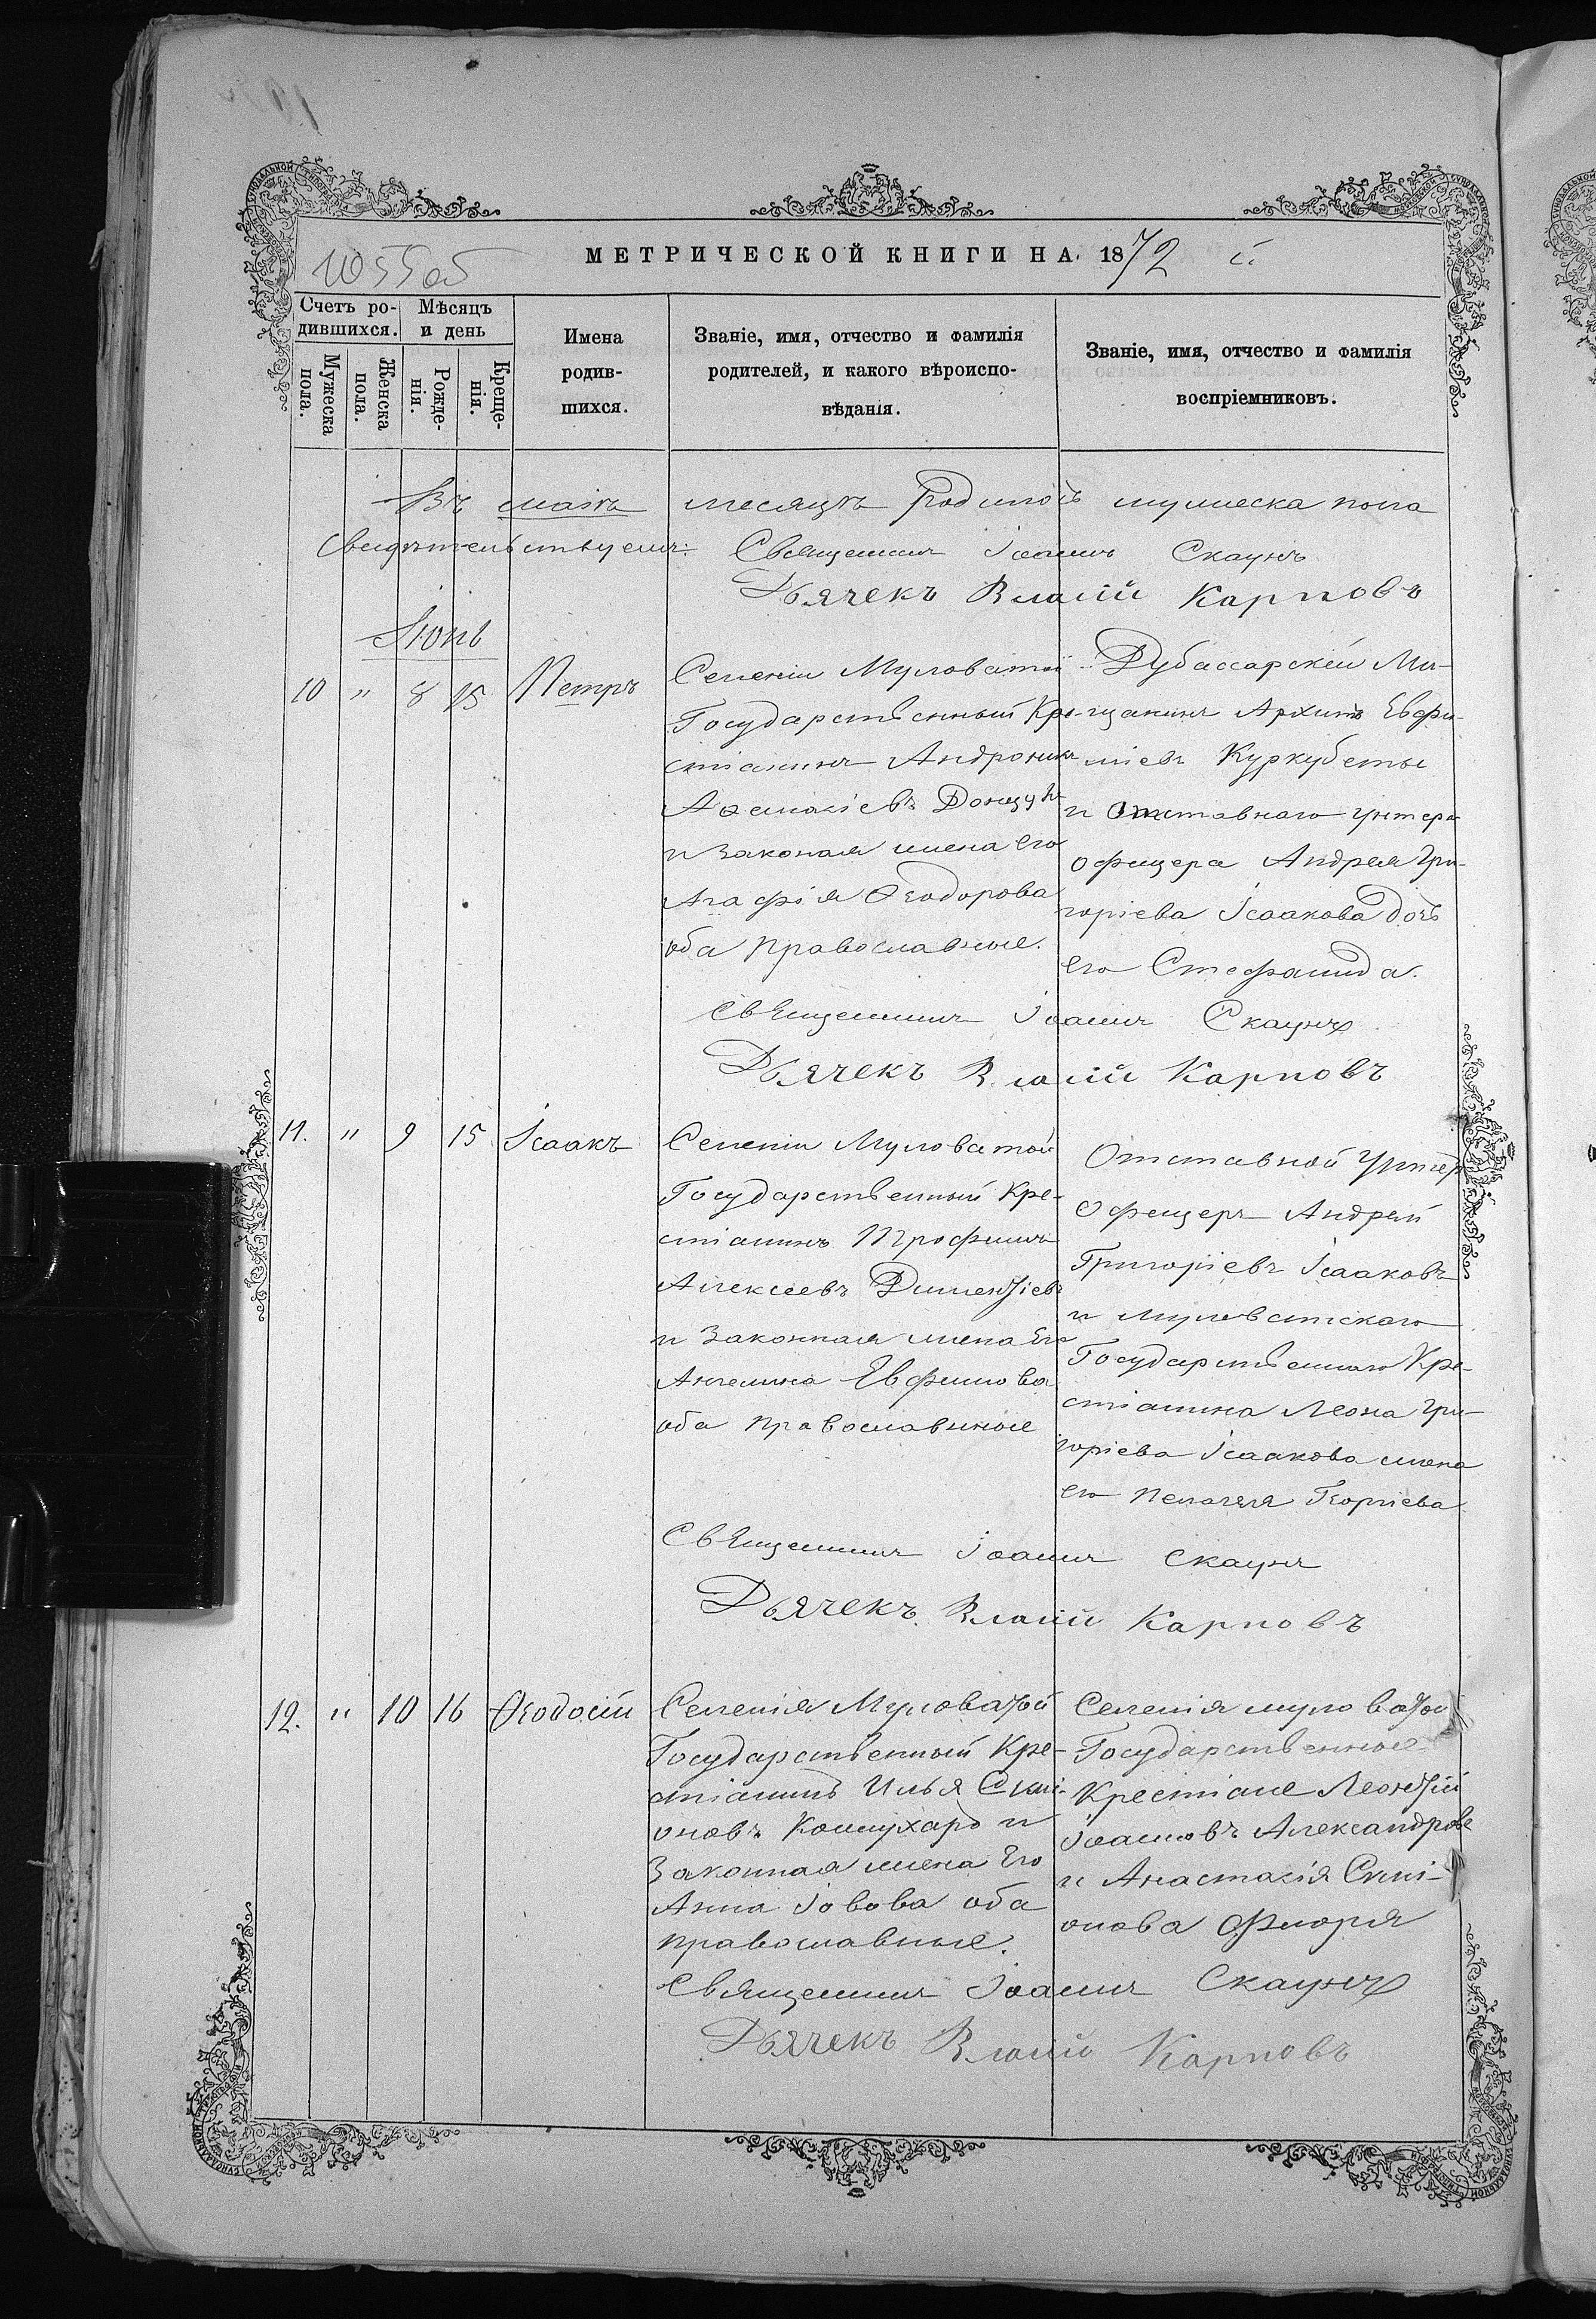 МЕТРИЧЕСКОЙ КНИГИ НА 1872 й.
Счетъ ро-
дившихся.
Мѣсяцъ
и день
Мужеска
пола.
Женска
пола.
Рожде-
нія.
Креще-
нія.
Имена
родив-
шихся.
Званіе, имя, отчество и фамилія
родителей, и какого вѣроиспо-
вѣданія.
Званіе, имя, отчество и фамилія
воспріемниковъ.
Въ маіѣ месяцѣ мужеска пола
Священникъ Іоаннъ Скаунъ
Дьячекъ Власій Карповъ
Іюнь
10 " 8 15 Петръ
Селенія Муловатой
Государственный Кре-
стіанинъ Андроникъ
и законая жена его
Агафія Ѳеодорова
оба православные.
Дубассарскій Мѣ-
щанинъ Архипъ Евфи-
міевъ Куркубеты
и отставнаго унтеръ
офицера Андрея Гри-
горіева Ісаакова дочь
его Стефанида.
Священникъ Іоаннъ Скаунъ
Дьячекъ Власій Карповъ
11. " 9 15 Ісаакъ
Селенія Муловатой
Государственный Кре-
стіанинъ Трофимъ
Алексеевъ
и Законная жена Его
Ангелина Евфимова
оба православные
Отставной Унтеръ
Офицеръ Андрей
Григоріевъ Ісааковъ
и муловатскаго
Государственнаго Кре-
стіанина Леона Гри-
горіева Ісаакова жена
его Пелагея Георгіева
Священникъ Іоаннъ Скаунъ
Дьячекъ Власій Карповъ
12. " 10 16 Ѳеодосій
Селенія Муловатой
Государственный Кре-
стіанинъ Илья Симі-
оновъ Кошухаръ и
Законная жена Его
Анна Іовова оба
православные.
Селенія муловатой
Государственные
Крестіане Леонтій
Іоанновъ Александрове
и Анастасія Симі-
онова Флоря
Священникъ Іоаннъ Скаунъ
Дьячекъ Власій Карповъ